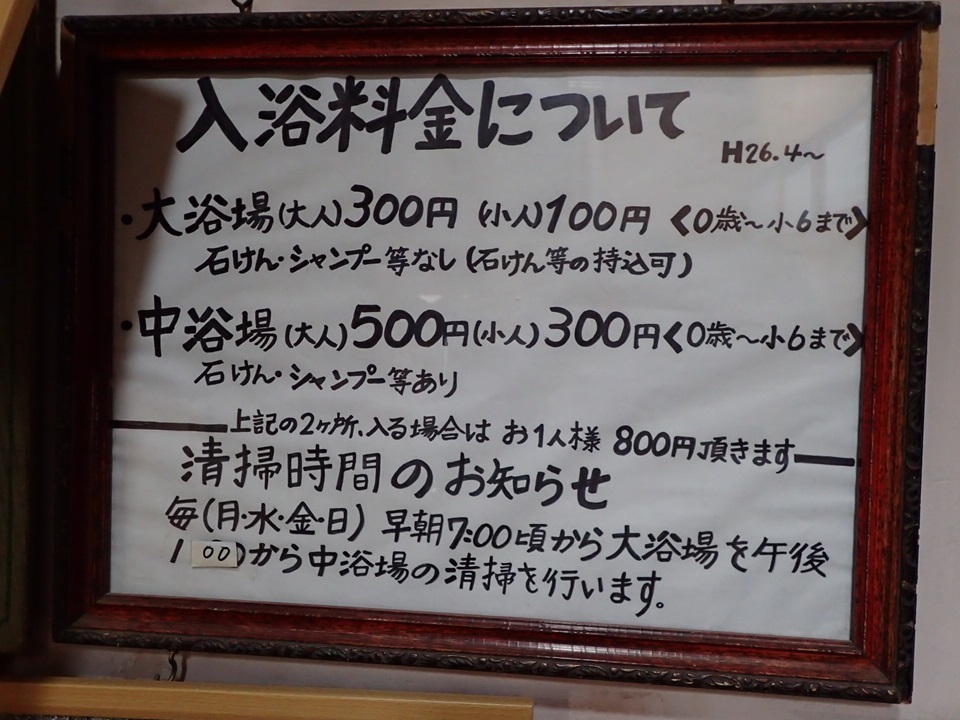 入浴料金について
H26.4～
・大浴場(大人)300円 (小人)100円 〈0歳～小6まで〉
石けん・シャンプー等なし(石けん等の持込可)
・中浴場(大人)500円(小人)300円〈0歳～小6まで〉
石けん・シャンプー等あり
上記の2ヶ所、入る場合は お1人様 800円頂きます
清掃時間のお知らせ
毎(月・水・金・日) 早朝7:00頃から大浴場を午後
1 00から中浴場の清掃を行います。